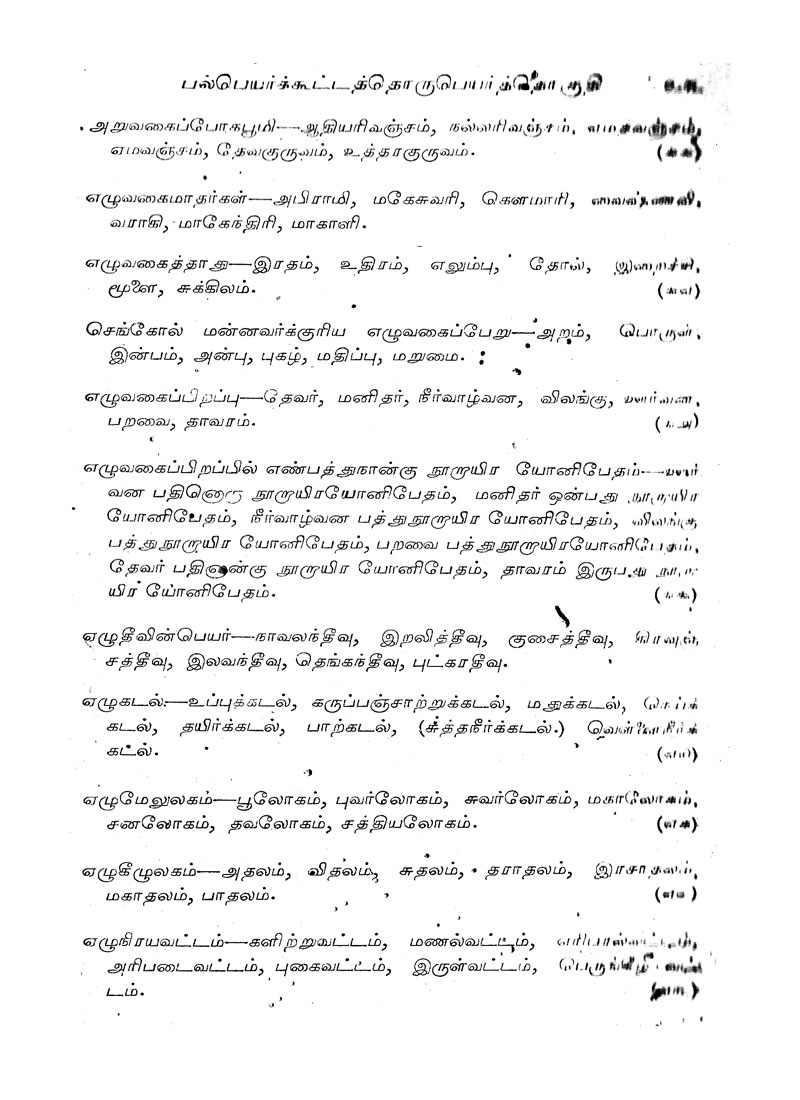 பல்பெயர்க்கூட்டத்தொருபெயர்த்தொகுதி
அறுவகைப்போகபூமி—ஆதியரிவஞ்சம், நல்லரிவஞ்சம்,
ஏமவஞ்சம், தேவகுருவம், உத்தரகுருவம்.
எழுவகைமாதர்கள்—அபிராமி, மகேசுவரி, கௌமாரி,
வராகி, மாகேந்திரி, மாகாளி.
எழுவகைத்தாது—இரதம், உதிரம், எலும்பு, தோல், இறைச்சி,
மூளை, சுக்கிலம்.
செங்கோல் மன்னவர்க்குரிய எழுவகைப்பேறு—அறம், பொருள்,
இன்பம், அன்பு, புகழ், மதிப்பு, மறுமை.
எழுவகைப்பிறப்பு—தேவர், மனிதர், நீர்வாழ்வன, விலங்கு, ஊர்வன,
பறவை, தாவரம்.
எழுவகைப்பிறப்பில் எண்பத்துநான்கு நூறாயிர யோனிபேதம்—ஊர்
வன பதினொரு நூறாயிரயோனிபேதம், மனிதர் ஒன்பது நூறாயிர
யோனிபேதம், நீர்வாழ்வன பத்துநூறாயிர யோனிபேதம், விலங்கு
பத்துநூறாயிர யோனிபேதம், பறவை பத்துநூறாயிரயோனிபேதம்,
தேவர் பதினான்கு நூறாயிர யோனிபேதம், தாவரம் இருபது நூறா
யிர யோனிபேதம்.
எழுதீவின்பெயர்—நாவலந்தீவு, இறலித்தீவு, குசைத்தீவு, கிரவுஞ்
சத்தீவு, இலவந்தீவு, தெங்கந்தீவு, புட்கரதீவு.
எழுகடல்—உப்புக்கடல், கருப்பஞ்சாற்றுக்கடல், மதுக்கடல், நெய்க்
கடல், தயிர்க்கடல், பாற்கடல், (சுத்தநீர்க்கடல்.)
கடல்.
எழுமேலுலகம்—பூலோகம், புவர்லோகம், சுவர்லோகம், மகாலோகம்,
சனலோகம், தவலோகம், சத்தியலோகம்.
எழுகீழுலகம்—அதலம், விதலம், சுதலம், தராதலம், இரசாதலம்,
மகாதலம், பாதலம்.
எழுநிரயவட்டம்—களிற்றுவட்டம், மணல்வட்டம், எரிபரல்வட்டம்,
அரிபடைவட்டம், புகைவட்டம், இருள்வட்டம், பெருங்கீழ் வட்
டம்.